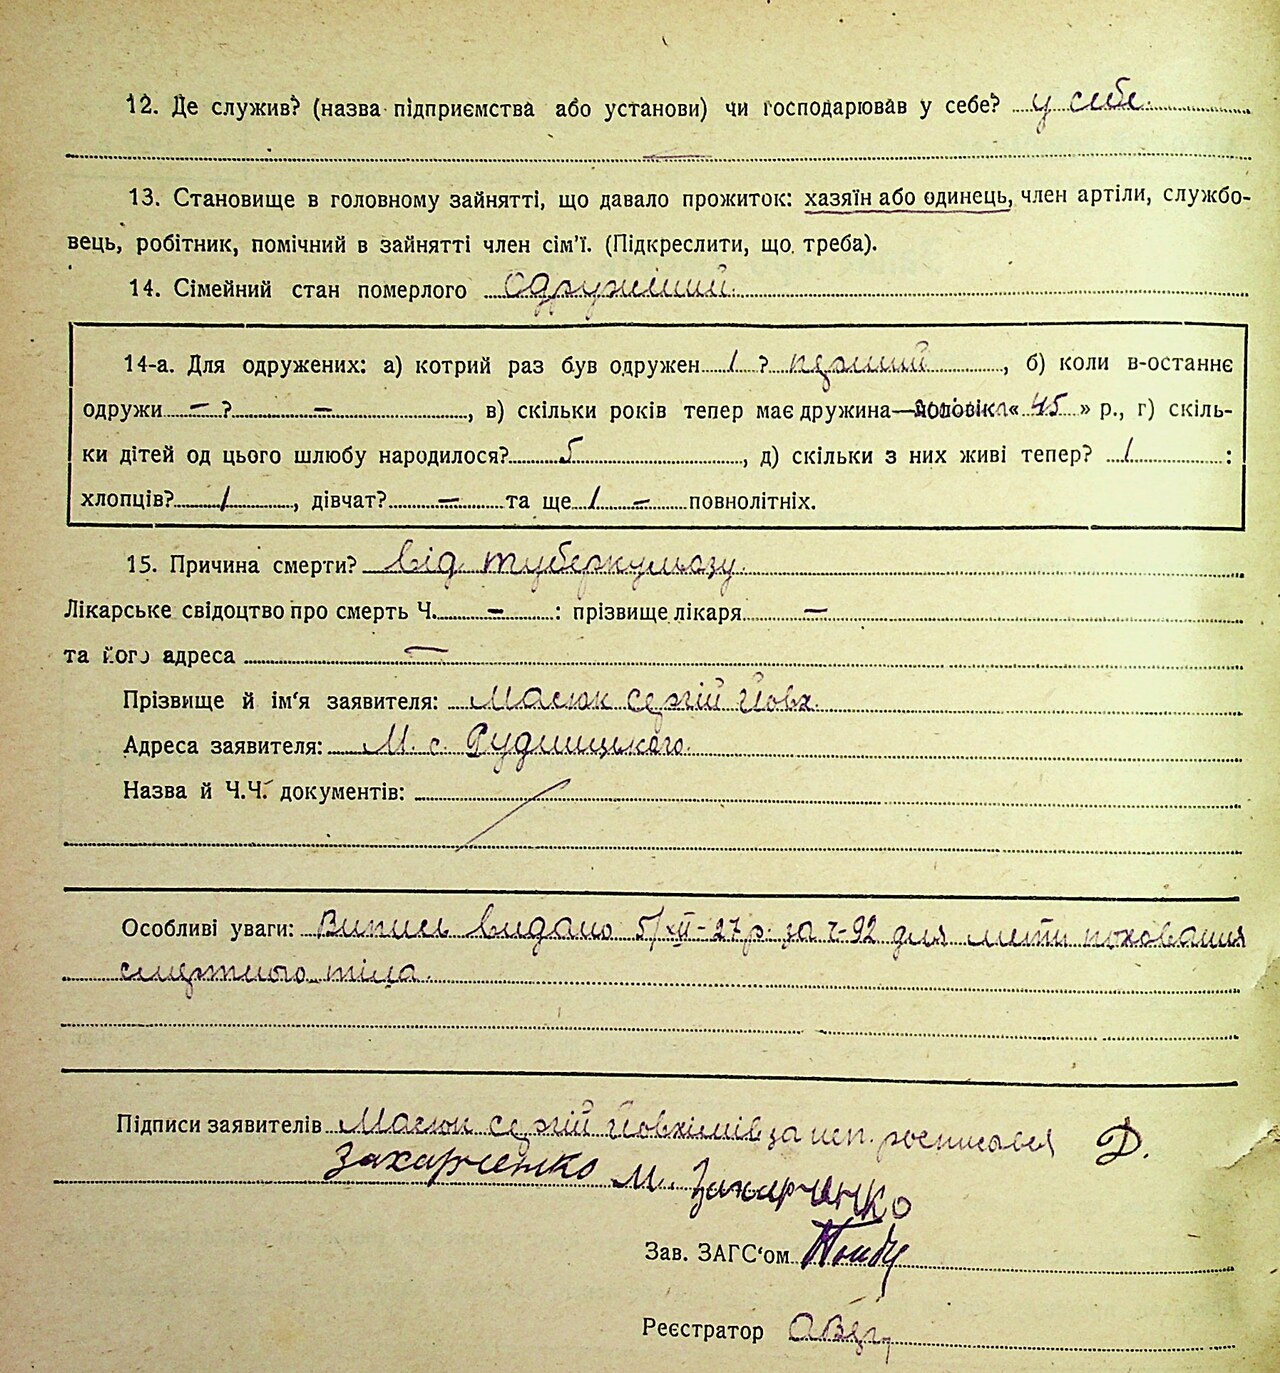 12. Де служив? (назва підприємства або установи) чи господарював у себе? у себе.
13. Становище в головному зайнятті, що давало прожиток: хазяїн або одинець, член артіли, службо-
вець, робітник, помічний в зайнятті член сім'ї. (Підкреслити, що треба).
14. Сімейний стан померлого одружений.
14-а. Для одружених: а) котрий раз був одружен 1 ? перший, б) коли в-останнє
одружи – ? –, в) скільки років тепер має дружина—чоловік « 45 » р., г) скіль-
ки дітей од цього шлюбу народилося? 5, д) скільки з них живі тепер? 1 :
хлопців? 1, дівчат? – та ще 1 – повнолітніх.
15. Причина смерти? від туберкульозу.
Лікарське свідоцтво про смерть Ч. – : прізвище лікаря –
та його адреса –
Прізвище й ім'я заявителя: Масюк Сергій Йовх.
Адреса заявителя: М. с. Рудницького.
Назва й Ч.Ч. документів:
Особливі уваги: Випись видано 5/XII-27 р. за ч-92 для мети поховання
смертного тіла.
Підписи заявителів Масюк Сергій Йовхімів за неп. росписався Д.
Захарченко М. Захарченко
Зав. ЗАГС'ом
Реєстратор